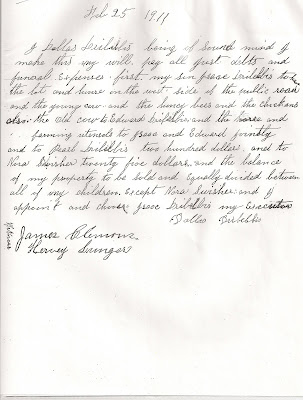 Feb 25 1911
I Dallas Dribblbis being of sound mind I
make this my will. pay all just debts and
funeral Expences first. my son Jesse Dribblbis to have
the lot and house on the west side of the public road
and the young cow and the buncy bees and the chickens
also the old cow to Edward Dribblbis and the horse and
farming utensels to Jesse and Edward jointly
and to Pearl Dribblbis two hundred dollars and to
Nora Swisher twenty five dollars and the balance
of my property to be sold and Equally divided between
all of my children Except Nora Swisher and I
appoint and chose Jesse Dribblbis my Executor
Dallas
James Clemons
Hervey